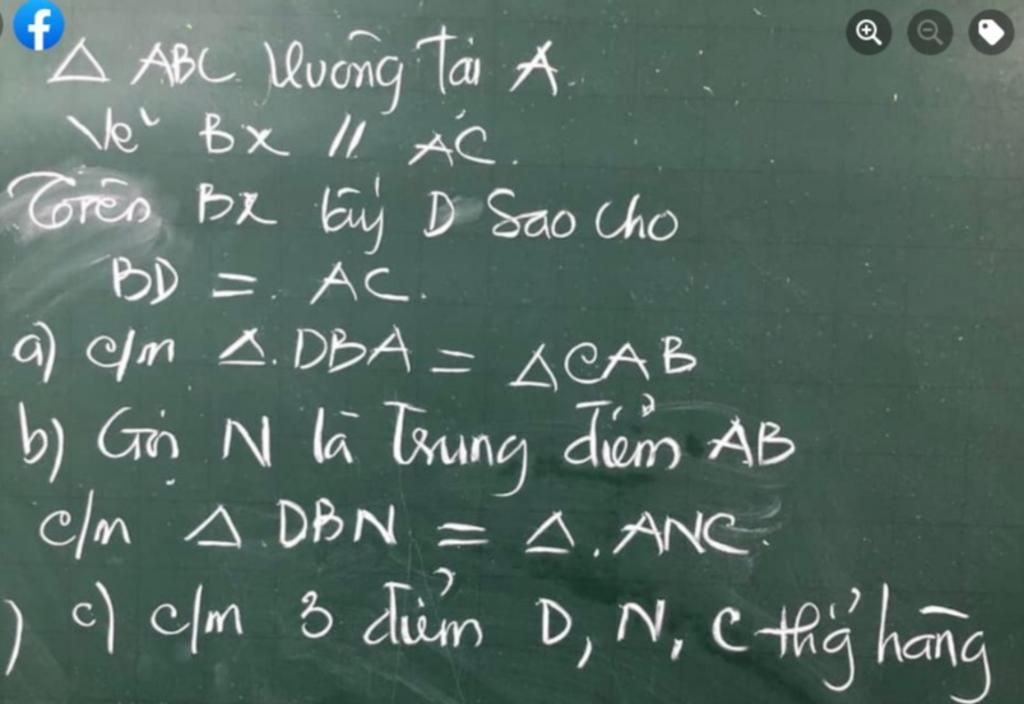 △ ABC vuông tại A.
Vẽ Bx // AC.
Trên Bx lấy D sao cho
BD = AC.
a) c/m △.DBA = △CAB
b) Gọi N là trung điểm AB
c/m △.DBN = △.ANC.
) c) c/m 3 điểm D, N, C thg̉ hàng